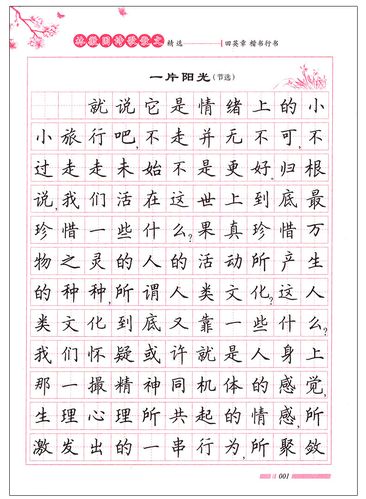 精选 田英章 楷书行书
一片阳光(节选)
就说它是情绪上的小
小旅行吧,不走并无不可,不
过走走未始不是更好.归根
说,我们活在这世上到底最
珍惜一些什么?果真珍惜万
物之灵的人的活动所产生
的种种,所谓人类文化?这人
类文化到底又靠一些什么?
我们怀疑或许就是人身上
那一撮精神同机体的感觉,
生理心理所共起的情感,所
激发出的一串行为,所聚敛
001